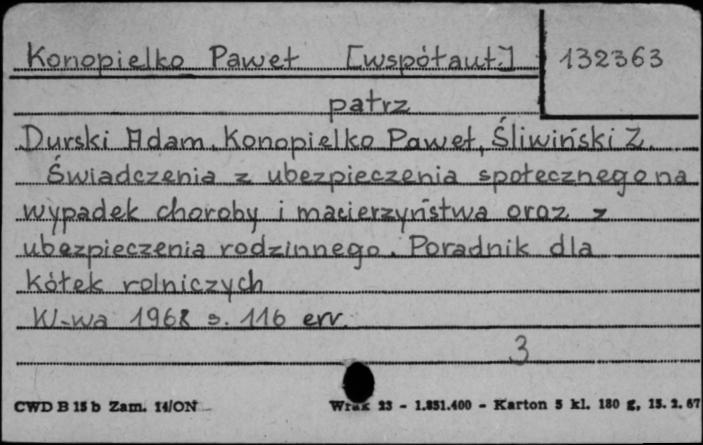 Konopielko Paweł [współaut.] 132363
patrz
Durski Adam, Konopielko Paweł, Śliwiński Z.
Świadczenia z ubezpieczenia społecznego na
wypadek choroby i macierzyństwa oraz z
ubezpieczenia rodzinnego. Poradnik dla
kółek rolniczych
W-wa 1968 s. 116 err.
3
CWD B 15 b Zam. 14/ON Wrak 23 - 1.851.400 - Karton 5 kl. 180 g, 15. 2. 67